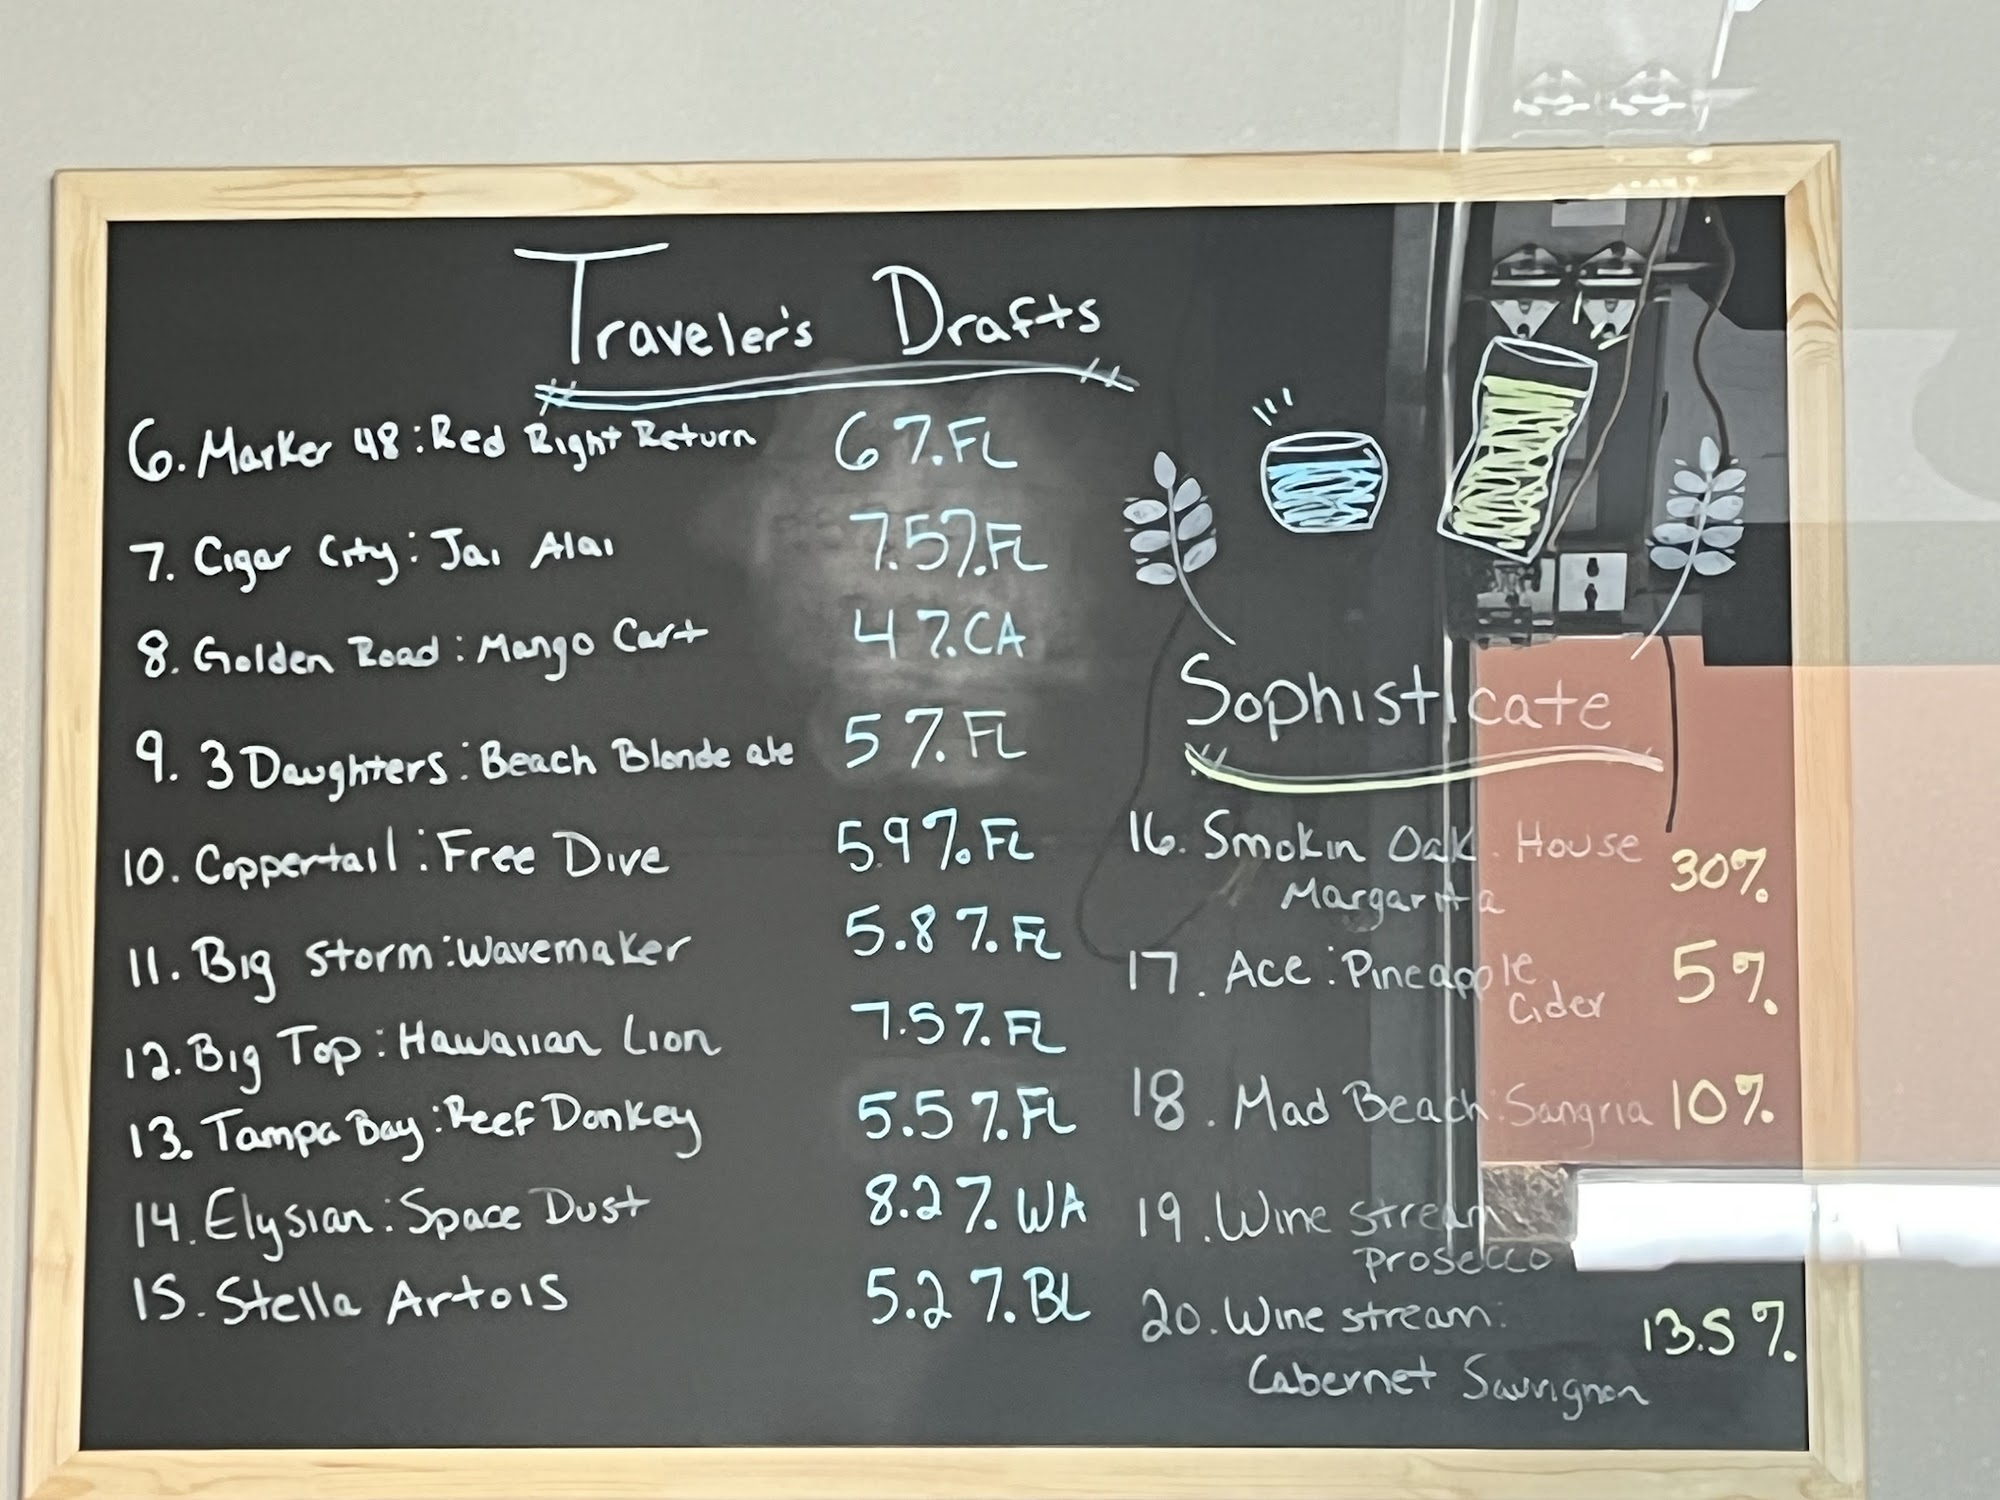 Traveler's Drafts
6. Marker 48: Red Right Return 6%. FL
7. Cigar City: Jai Alai 7.5%. FL
8. Golden Road: Mango Cart 4%. CA
9. 3 Daughters: Beach Blonde ale 5%. FL
10. Coppertail: Free Dive 5.9%. FL
11. Big Storm: Wavemaker 5.8%. FL
12. Big Top: Hawaiian Lion 7.5%. FL
13. Tampa Bay: Reef Donkey 5.5%. FL
14. Elysian: Space Dust 8.2%. WA
15. Stella Artois 5.2%. BL
Sophisticate
16. Smokin Oak. House 30%
Margarita
17. Ace: Pineapple 5%
Cider
18. Mad Beach: Sangria 10%
19. Wine stream
Prosecco
20. Wine stream: 13.5%
Cabernet Sauvignon